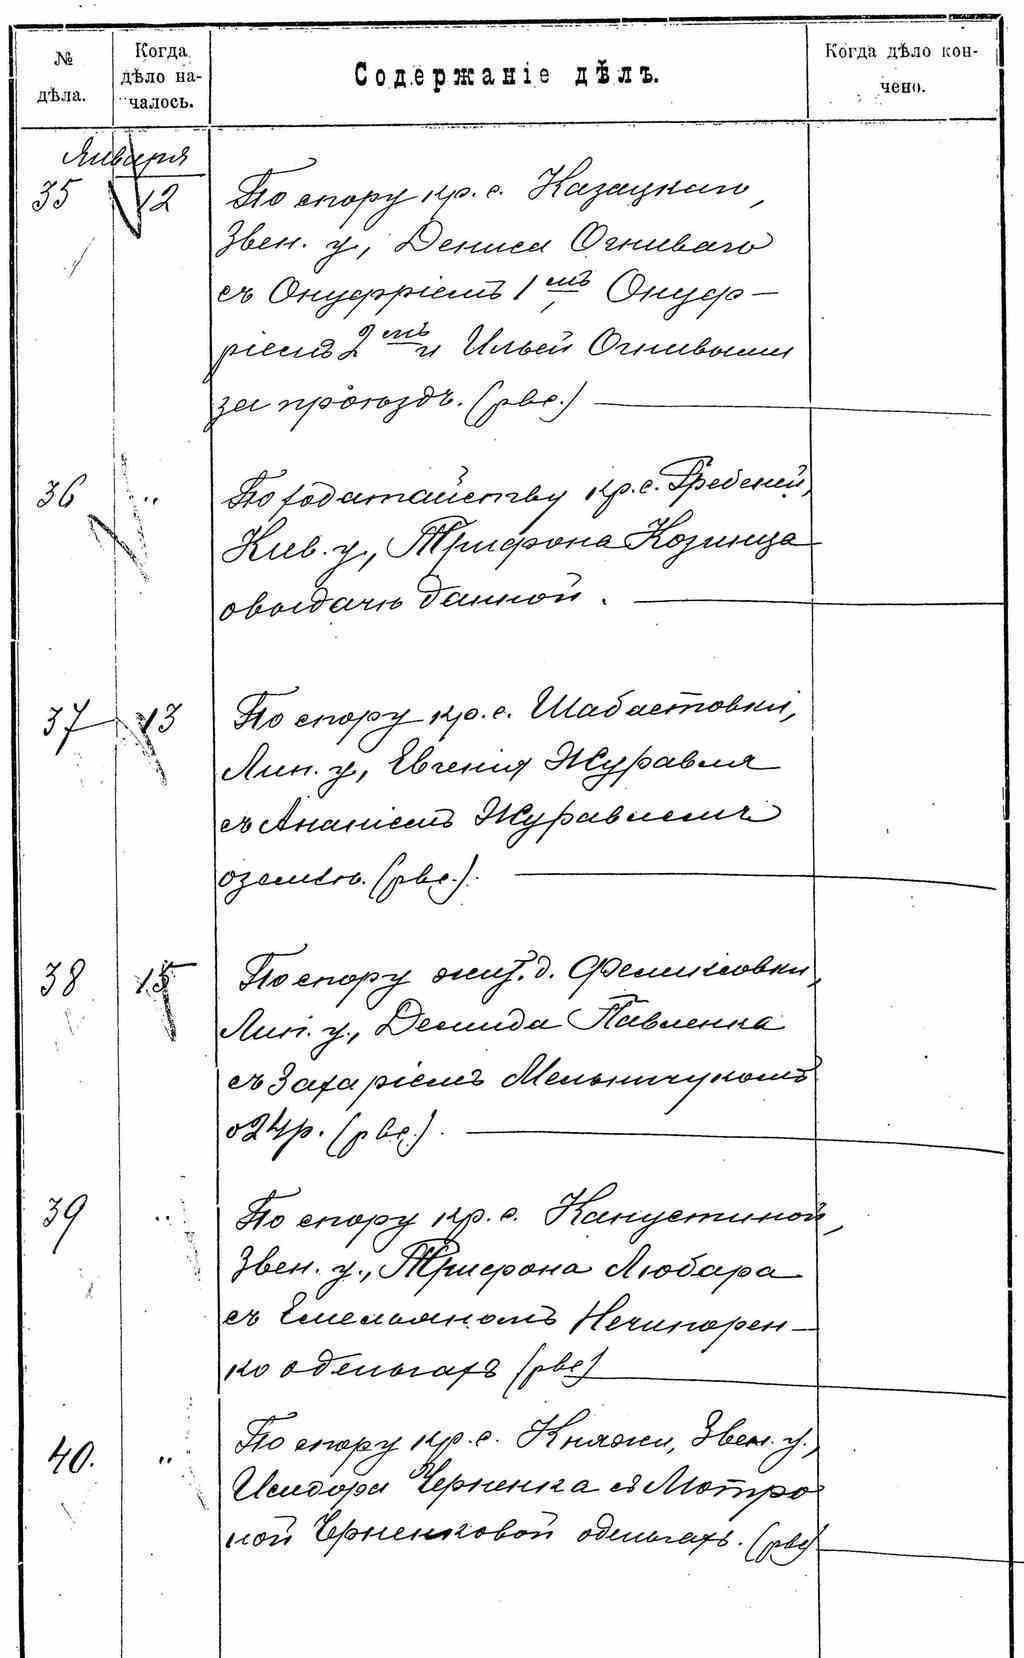 № дѣла.
Когда дѣло на-чалось.
Содержаніе дѣлъ.
Когда дѣло кон-чено.
Января
35 12 По спору кр. с. Казацкаго,
Звен. у., Дениса Огниваго
съ Онуфріемъ 1мъ, Онуф-
ріемъ 2мъ и Ильей Огнивыми
за проѣздъ. (рве.)
36 " По ходатайству кр. с. Гребеней,
Кіев. у., Трифона Козинца
о выдачѣ данной.
37 13 По спору кр. с. Шабастовки,
Лип. у., Евгенія Журавля
съ Ананіемъ Журавлемъ
о землѣ. (рве.).
38 15 По спору жит. д. Феликсовки,
Лип. у., Демида Павленка
съ Захаріемъ Мельничукомъ
о 24 р. (рве.).
39 " По спору кр. с. Капустиной,
Звен. у., Трифона Любара
съ Емельяномъ Нечипорен-
ко о деньгахъ (рве)
40. " По спору кр. с. Княжи, Звен. у.,
Исидора Черненка съ Мотро
ной Черненковой о деньгахъ. (рве)